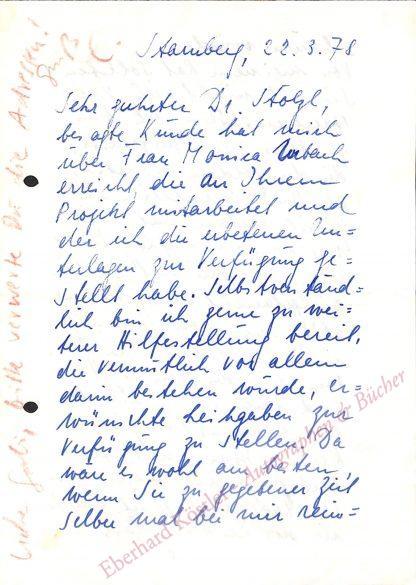 Starnberg, 22.3.78
Sehr geehrter Dr. Stölzl,
besagte Kunde hat mich
über Frau Monica
erreicht, die an Ihrem
Projekt mitarbeitet und
der ich die erbetenen Un-
terlagen zur Verfügung ge-
stellt habe. Selbstverständ=
lich bin ich gerne zu wei-
terer Hilfestellung bereit,
die vermutlich vor allem
darin bestehen würde, er-
wünschte Leihgaben zur
Verfügung zu stellen. Da
wäre es wohl am besten,
wenn Sie zu gegebener Zeit
selber mal bei mir rein=
bitte Du die Adressen!
Gruß
Eberhard Köstler Autographen & Bücher